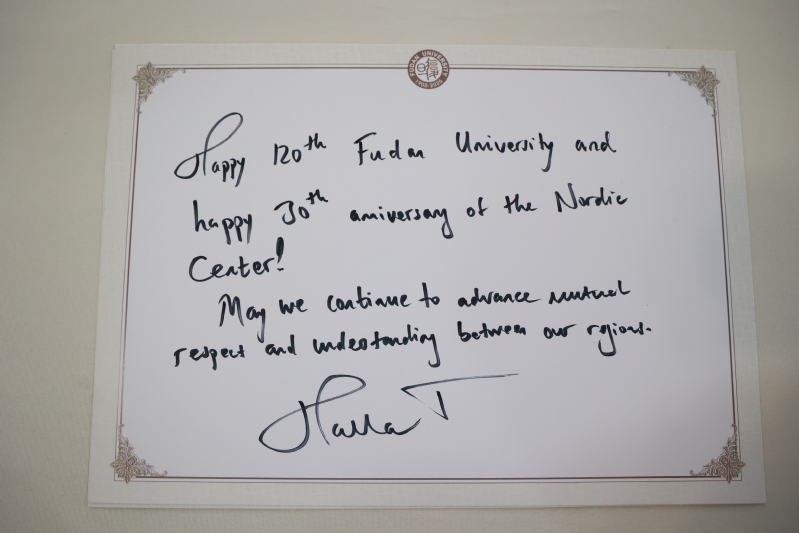 FUDAN UNIVERSITY
1905-2025
Happy 120th Fudan University and
happy 30th anniversary of the Nordic
Center!
May we continue to advance mutual
respect and understanding between our regions.
Halla T